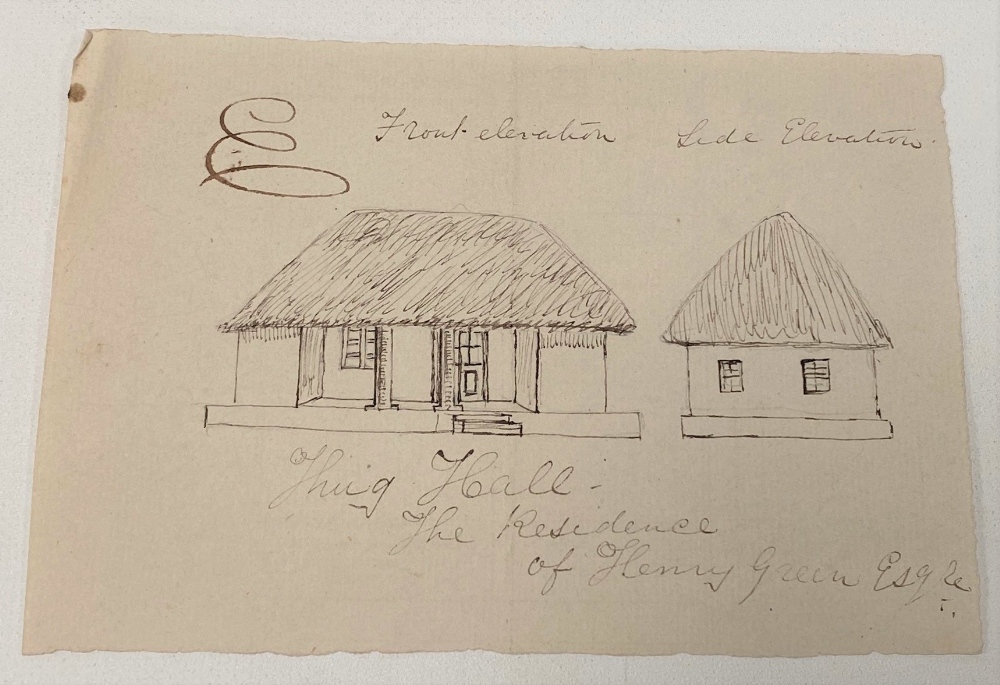 E
Front elevation
Side Elevation.
Thug Hall.
The Residence
of Henry Green Esqre